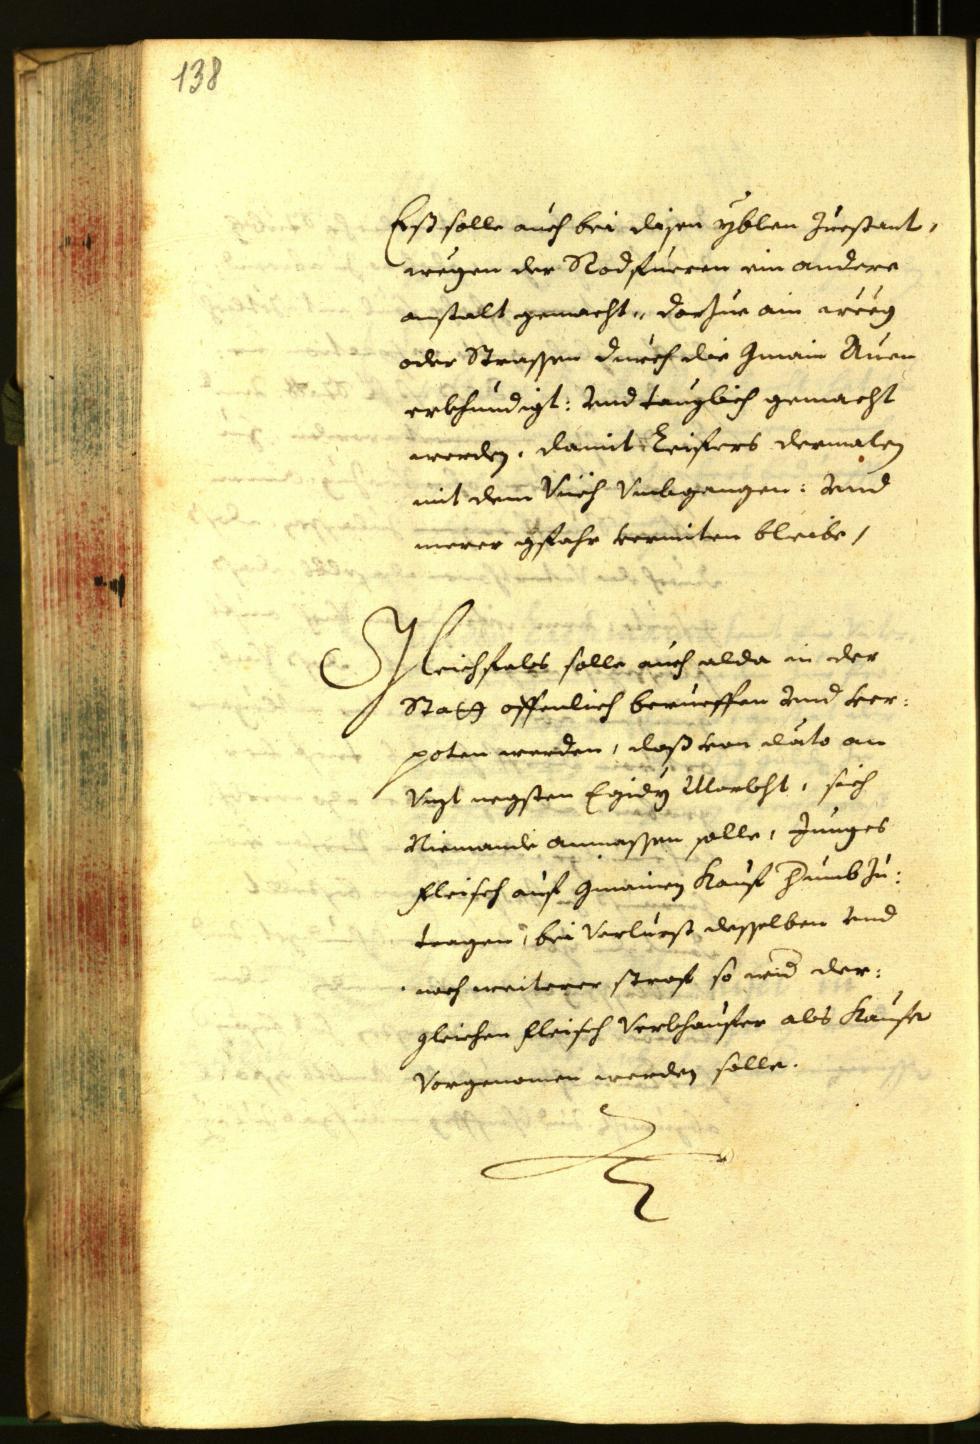 138
Es solle auch bei disen yblen Zuestant,
wegen der Rodfueren ein andere
anstalt gemacht, darzue ain weeg
oder Strassen durch die Gmain Auen
erkhundigt: vnd tauglich gemacht
werden, damit leisters dermalen
mit dem Vich Vmbgangen: vnd
merer gfahr vermiten bleibe /
Gleichfals solle auch alda in der
Statt offenlich berueffen vnd ver:
poten werden, daß von dato an
Vnzt negsten Egidy Markht, sich
Niemandt anmassen solle, Junges
fleisch auf gmainen Kauf herumb zu:
tragen, bei Verlurst desselben vnd
noch weiterer straf so wid der:
gleichen fleisch Verkhauffer als Kauffer
Vorgenomen werden solle.